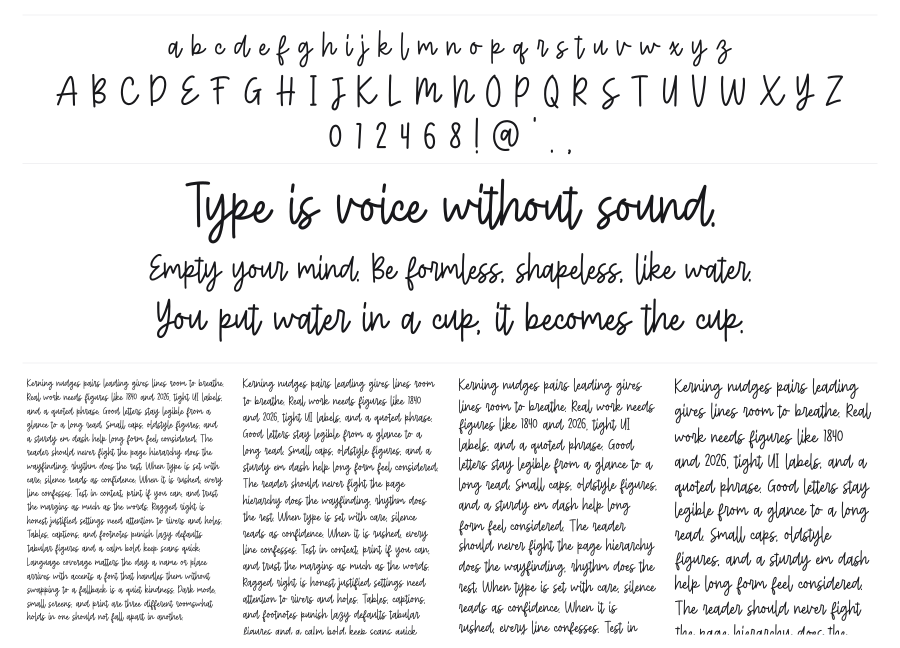 a b c d e f g h i j k l m n o p q r s t u v w x y z
A B C D E F G H I J K L M N O P Q R S T U V W X Y Z
0 1 2 4 6 8 ! @ ' . ,
Type is voice without sound.
Empty your mind. Be formless, shapeless, like water.
You put water in a cup, it becomes the cup.
Kerning nudges pairs leading gives lines room to breathe.
Real work needs figures like 1840 and 2026, tight UI labels,
and a quoted phrase. Good letters stay legible from a
glance to a long read. Small caps, oldstyle figures, and
a sturdy em dash help long form feel considered. The
reader should never fight the page hierarchy does the
wayfinding, rhythm does the rest. When type is set with
care, silence reads as confidence. When it is rushed, every
line confesses. Test in context, print if you can, and trust
the margins as much as the words. Ragged right is
honest justified settings need attention to rivers and holes.
Tables, captions, and footnotes punish lazy defaults
tabular figures and a calm bold keep scans quick.
Language coverage matters the day a name or place
arrives with accents a font that handles them without
swapping to a fallback is a quiet kindness. Dark mode,
small screens, and print are three different roomswhat
holds in one should not fall apart in another.
Kerning nudges pairs leading gives lines room
to breathe. Real work needs figures like 1840
and 2026, tight UI labels, and a quoted phrase.
Good letters stay legible from a glance to a
long read. Small caps, oldstyle figures, and a
sturdy em dash help long form feel considered.
The reader should never fight the page
hierarchy does the wayfinding, rhythm does
the rest. When type is set with care, silence
reads as confidence. When it is rushed, every
line confesses. Test in context, print if you can,
and trust the margins as much as the words.
Ragged right is honest justified settings need
attention to rivers and holes. Tables, captions,
and footnotes punish lazy defaults tabular
figures and a calm bold keep scans quick.
Kerning nudges pairs leading gives
lines room to breathe. Real work needs
figures like 1840 and 2026, tight UI
labels, and a quoted phrase. Good
letters stay legible from a glance to a
long read. Small caps, oldstyle figures,
and a sturdy em dash help long
form feel considered. The reader
should never fight the page hierarchy
does the wayfinding, rhythm does the
rest. When type is set with care, silence
reads as confidence. When it is
rushed, every line confesses. Test in
Kerning nudges pairs leading
gives lines room to breathe. Real
work needs figures like 1840
and 2026, tight UI labels, and a
quoted phrase. Good letters stay
legible from a glance to a long
read. Small caps, oldstyle
figures, and a sturdy em dash
help long form feel considered.
The reader should never fight
the page hierarchy does the